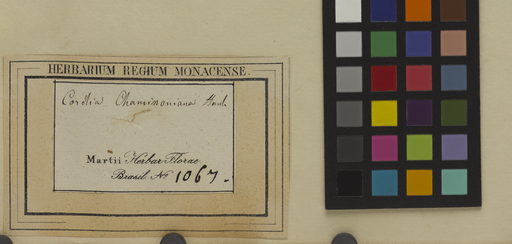 HERBARIUM REGIUM MONACENSE.
Cordia Chamissoniana
Martii Herbar. Florae
Brasil. No 1067.